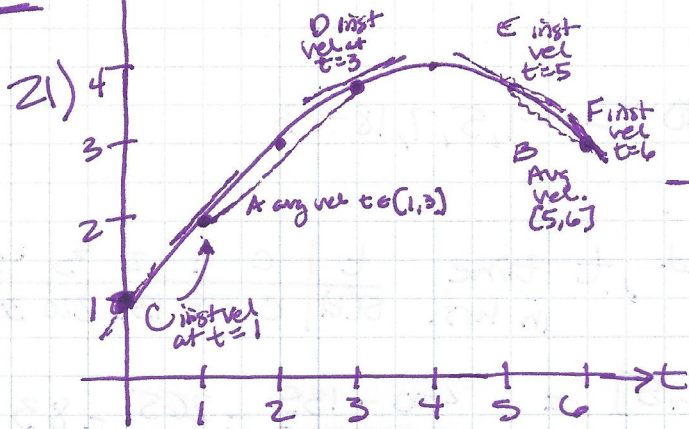 21)
4
3
2
1
D inst
vel at
t=3
E inst
vel
t=5
F inst
vel
t=6
B
Avg
vel.
[5,6]
A avg vel t∈[1,3]
C inst vel
at t=1
t
1 2 3 4 5 6